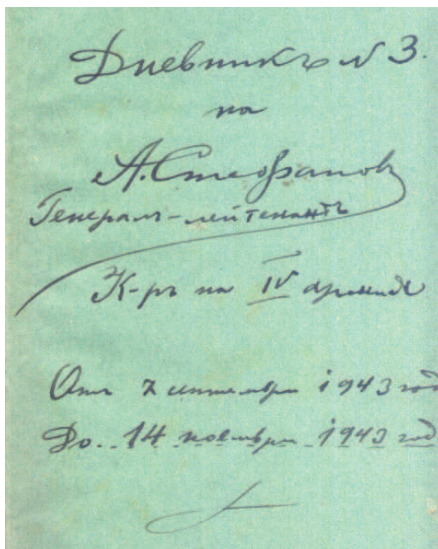 Дневникъ № 3.
на
А. Стефановъ
Генералъ-лейтенантъ
К-ръ на IV армия
Отъ 7 септември 1943 год
До. 14 ноември 1943 год